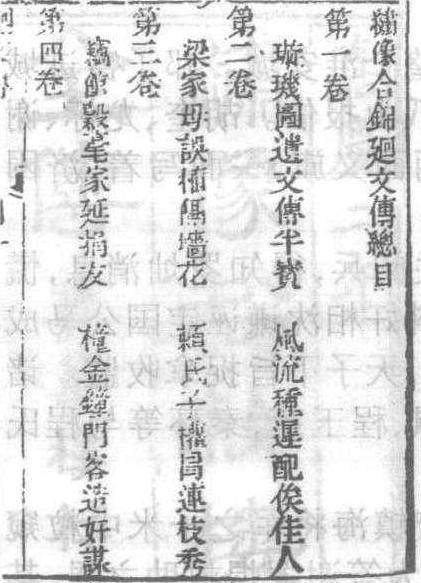 繡像合錦廻文傳總目
第一卷
璇璣圖遺文傳半 風流種遲配俟佳人
第二卷
梁家母誤插隔墻花 賴氏子權冒連枝秀
第三卷
竊館穀 家延損友 金 門客造奸謀
第四卷